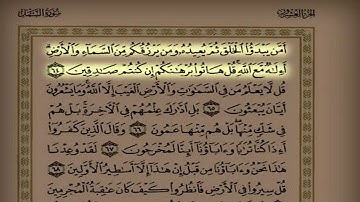 الجزء العشرون سورة النمل
أَمَّن يَبْدَؤُا۟ ٱلْخَلْقَ ثُمَّ يُعِيدُهُۥ وَمَن يَرْزُقُكُم مِّنَ ٱلسَّمَآءِ وَٱلْأَرْضِ
أَءِلَٰهٌ مَّعَ ٱللَّهِ قُلْ هَاتُوا۟ بُرْهَٰنَكُمْ إِن كُنتُمْ صَٰدِقِينَ ٦٤
قُل لَّا يَعْلَمُ مَن فِى ٱلسَّمَٰوَٰتِ وَٱلْأَرْضِ ٱلْغَيْبَ إِلَّا ٱللَّهُ وَمَا يَشْعُرُونَ
أَيَّانَ يُبْعَثُونَ ٦٥ بَلِ ٱدَّٰرَكَ عِلْمُهُمْ فِى ٱلْءَاخِرَةِ بَلْ هُمْ
فِى شَكٍّ مِّنْهَا بَلْ هُم مِّنْهَا عَمُونَ ٦٦ وَقَالَ ٱلَّذِينَ كَفَرُوٓا۟
أَءِذَا كُنَّا تُرَٰبًا وَءَابَآؤُنَآ أَئِنَّا لَمُخْرَجُونَ ٦٧ لَقَدْ وُعِدْنَا
هَٰذَا نَحْنُ وَءَابَآؤُنَا مِن قَبْلُ إِنْ هَٰذَآ إِلَّآ أَسَٰطِيرُ ٱلْأَوَّلِينَ ٦٨
قُلْ سِيرُوا۟ فِى ٱلْأَرْضِ فَٱنظُرُوا۟ كَيْفَ كَانَ عَٰقِبَةُ ٱلْمُجْرِمِينَ